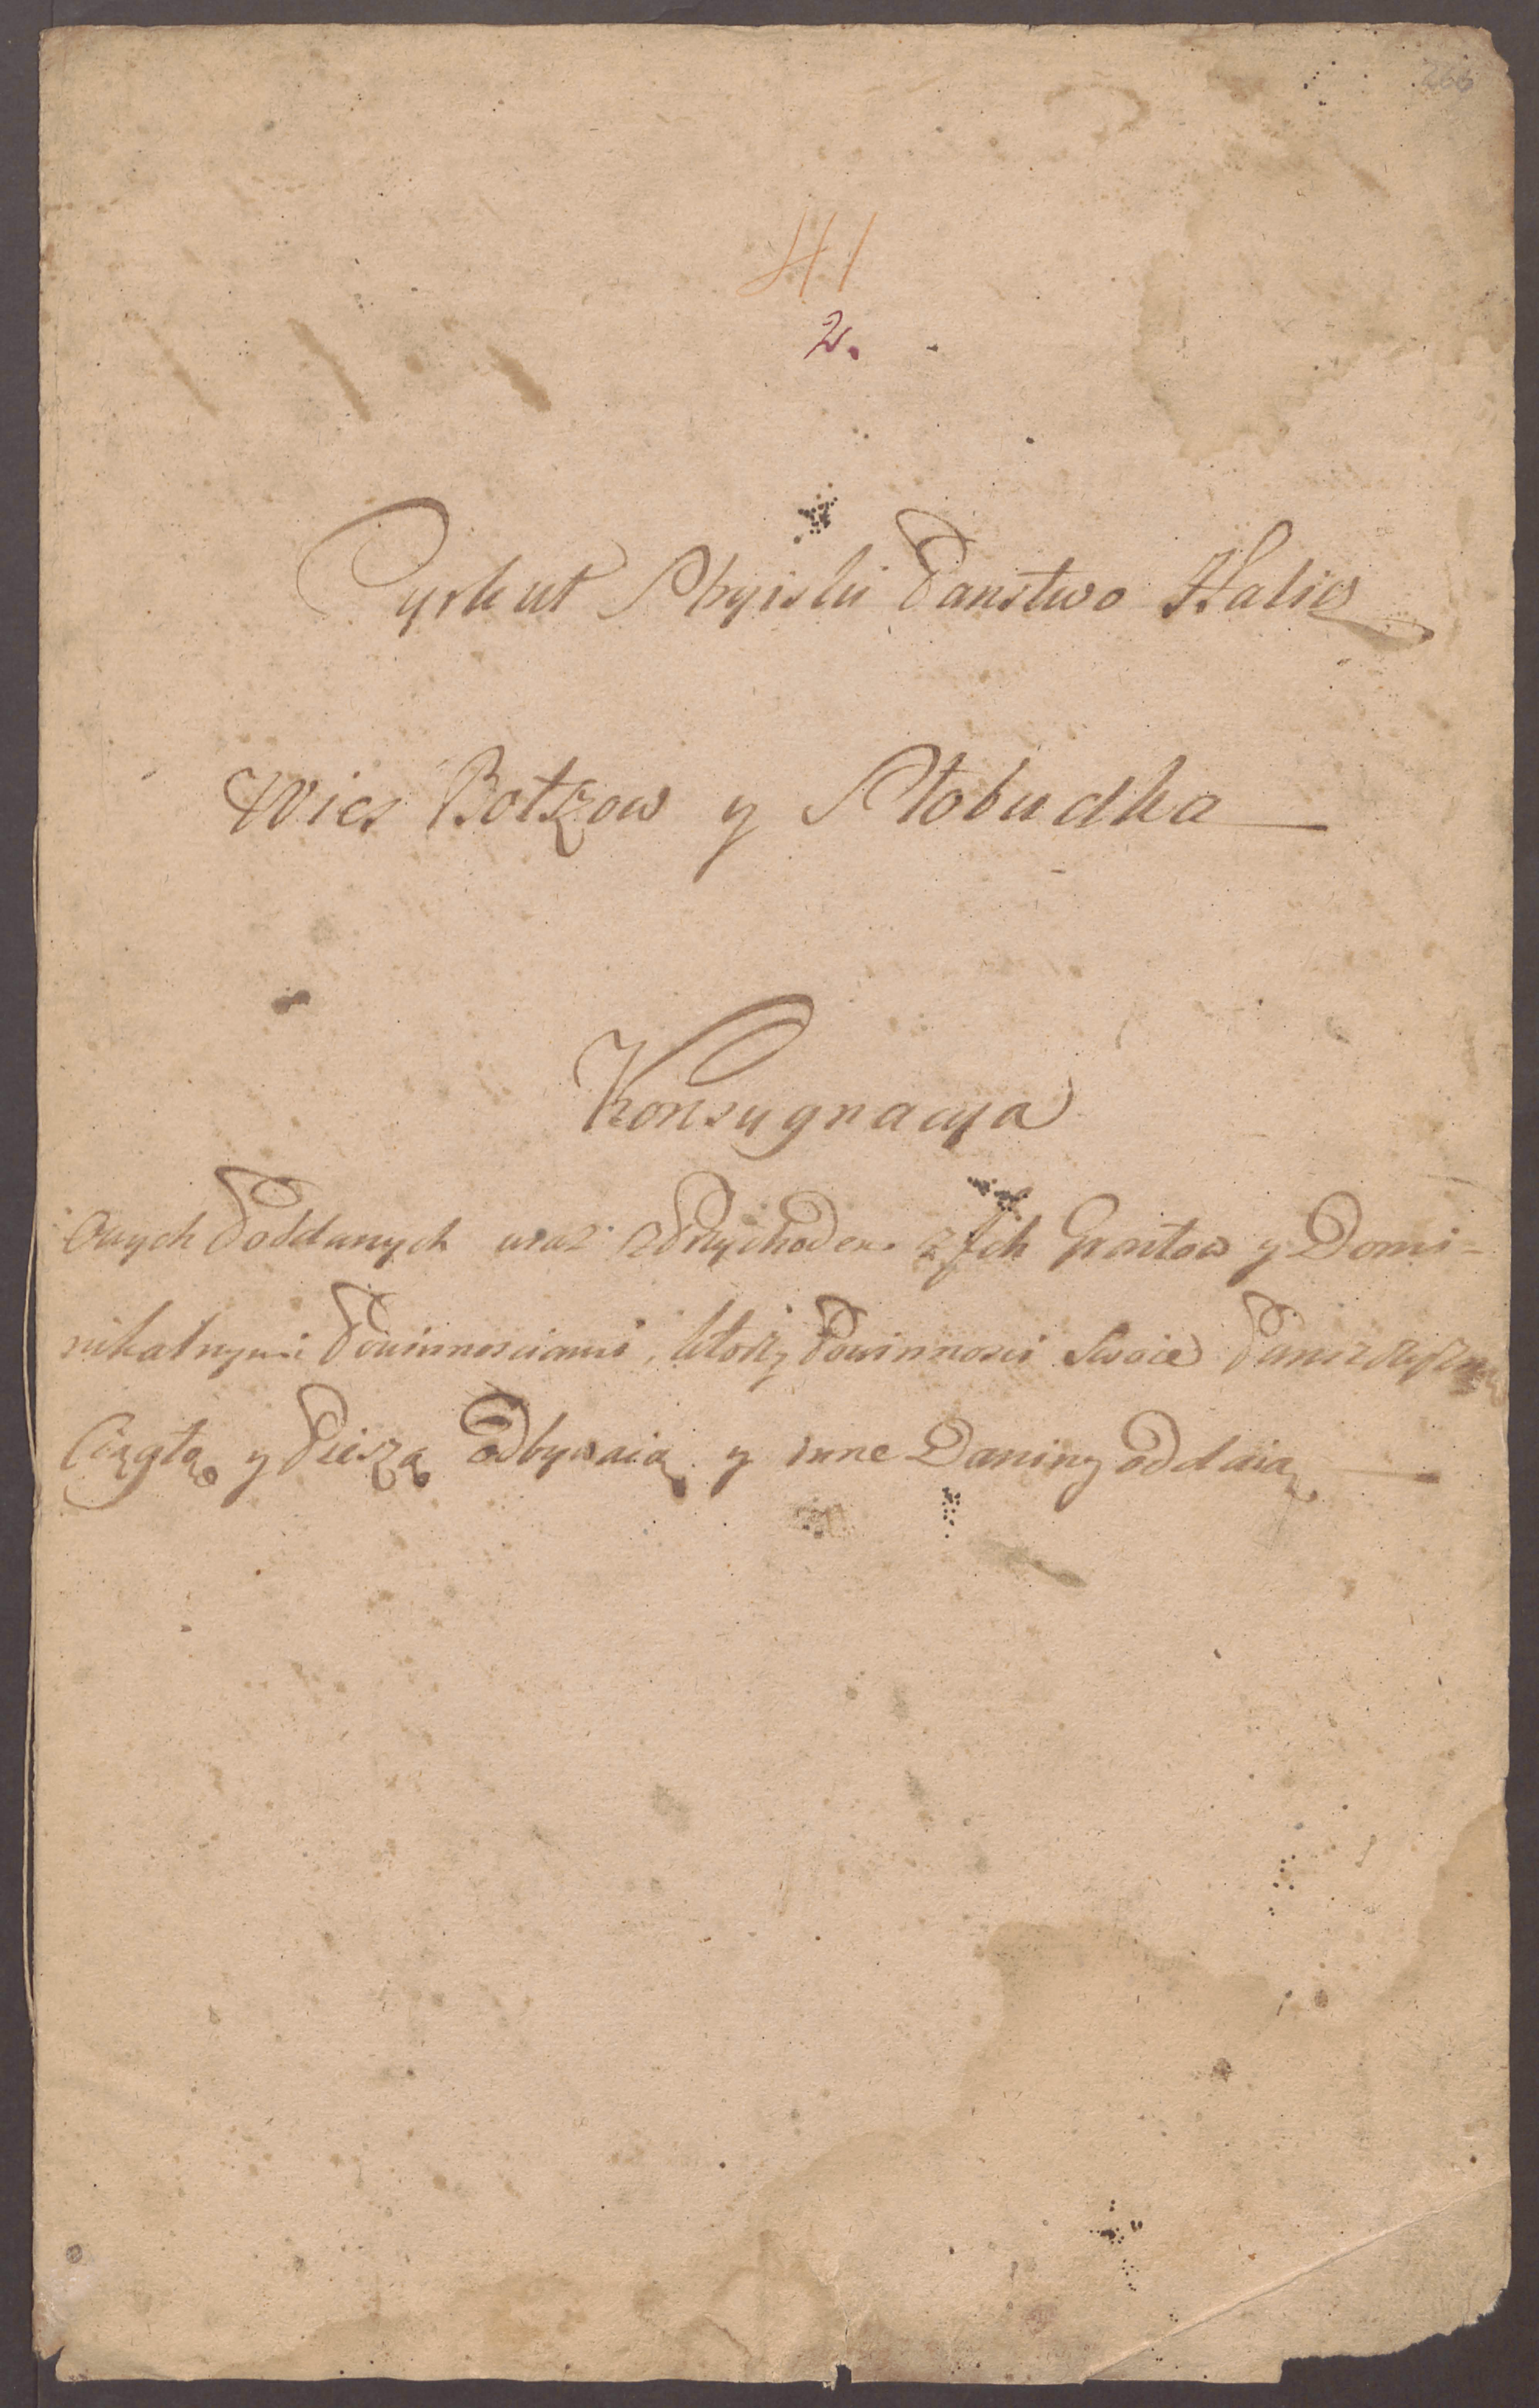 266
41
2.
Cyrkuł Stryiski Panstwo Halicz
Wies Bołszow y Słobudka
Konsygnacya
Owych Poddanych wraz z Przychodem z Jch Gruntow y Domi-
nikalnymi Powinnosciami, ktorzy Powinnosci Swoie Panszczyzną
Ciągłą y Pieszą odbywaią y inne Daniny oddaią